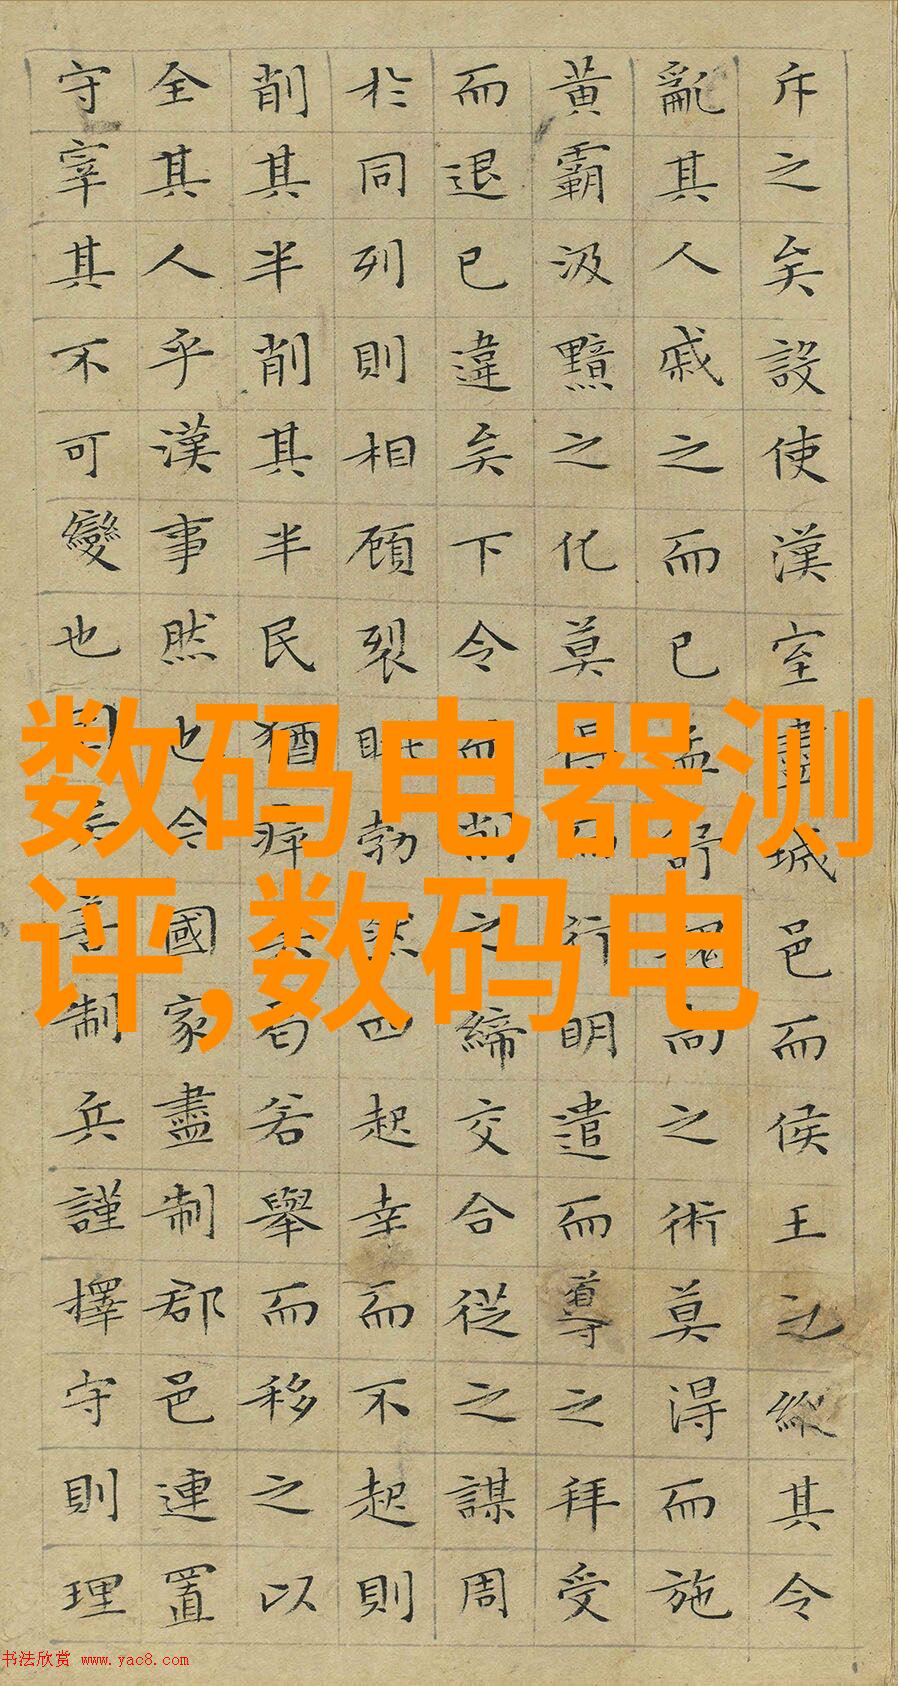 斥之矣設使漢室盡城邑而侯王之縱其令
亂其人戚之而已孟舒魏尚之術莫得而施
黃霸汲黯之化莫得而行明遣而導之拜受
而退已違矣下令而削之締交合從之謀周
於同列則相顧裂眦勃然起幸而不起則
削其半削其半民猶瘁矣曷若舉而移之以
全其人乎漢事然也今國家盡制郡邑連置
守宰其不可變也固矣善制兵謹擇守則理
数码电器测
评,数码电
书法欣赏 www.yac8.com